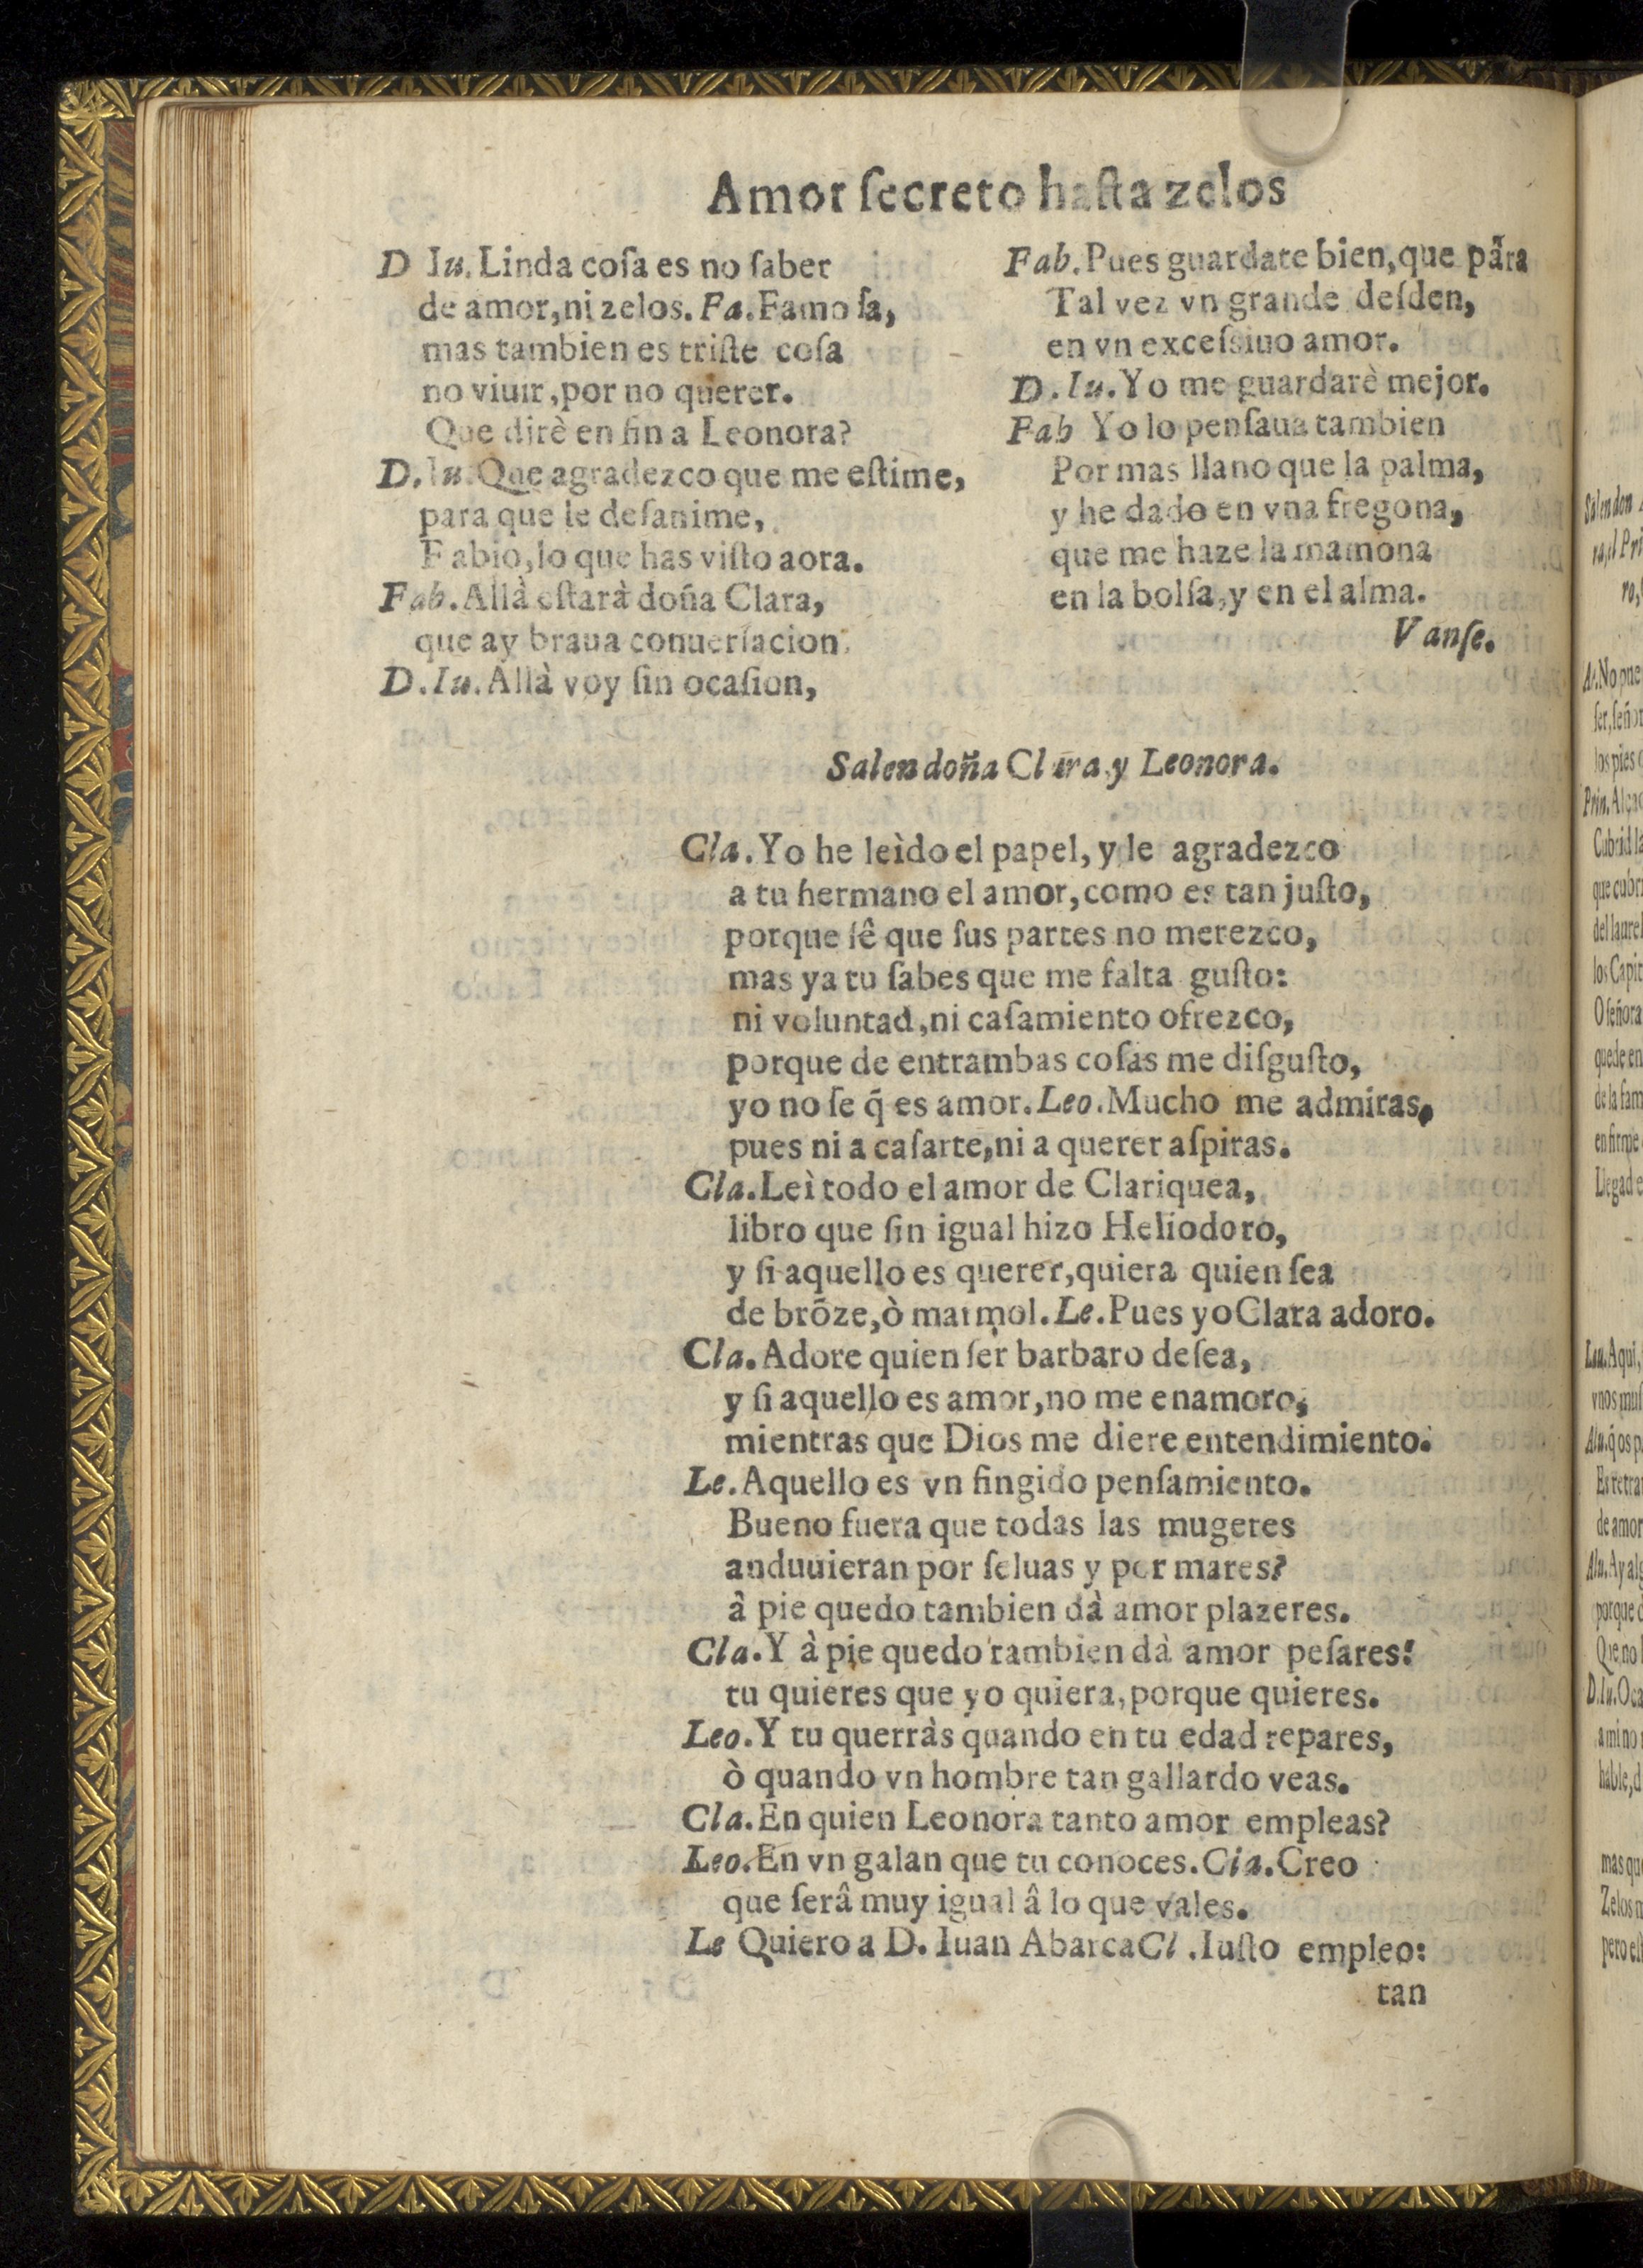 Amor ſecreto haſta zelos
D Iu. Linda coſa es no ſaber
de amor, ni zelos. Fa. Famoſa,
mas tambien es triſte coſa
no viuir, por no querer.
Que dirè en fin a Leonora?
D. Iu. Que agradezco que me eſtime,
para que le deſanime,
Fabio, lo que has viſto aora.
Fab. Allà eſtarà doña Clara,
que ay braua conuerſacion.
D. Iu. Allà voy ſin ocaſion,
Fab. Pues guardate bien, que pãra
Tal vez vn grande deſden,
en vn exceſsiuo amor.
D. Iu. Yo me guardarè mejor.
Fab Yo lo penſaua tambien
Por mas llano que la palma,
y he dado en vna fregona,
que me haze la mamona
en la bolſa, y en el alma.
Vanſe.
Salen doña Clara, y Leonora.
Cla. Yo he leìdo el papel, y le agradezco
a tu hermano el amor, como es tan juſto,
porque ſê que ſus partes no merezco,
mas ya tu ſabes que me falta guſto:
ni voluntad, ni caſamiento ofrezco,
porque de entrambas coſas me diſguſto,
yo no ſe q̃ es amor. Leo. Mucho me admiras,
pues ni a caſarte, ni a querer aſpiras.
Cla. Leì todo el amor de Clariquea,
libro que ſin igual hizo Heliodoro,
y ſi aquello es querer, quiera quien ſea
de brõze, ò marmol. Le. Pues yo Clara adoro.
Cla. Adore quien ſer barbaro deſea,
y ſi aquello es amor, no me enamoro,
mientras que Dios me diere entendimiento.
Le. Aquello es vn fingido penſamiento.
Bueno fuera que todas las mugeres
anduuieran por ſeluas y por mares?
â pie quedo tambien dà amor plazeres.
Cla. Y à pie quedo tambien dà amor peſares!
tu quieres que yo quiera, porque quieres.
Leo. Y tu querràs quando en tu edad repares,
ò quando vn hombre tan gallardo veas.
Cla. En quien Leonora tanto amor empleas?
Leo. En vn galan que tu conoces. Cla. Creo
que ſerâ muy igual â lo que vales.
Le Quiero a D. Iuan Abarca Cl. Iuſto empleo:
tan
Salen don
ro,
A. No pue
ſer, ſeñor
los pies
Cubrid la
que cubr
del laurel
los Capit
O ſeñora
quede en
de la fam
en firme
Llegad e
Aqui,
vnos muſ
Es retra
de amor
Alu. Ay alg
porque
Que no
D. Iu. Oca
a mi no
hable, d
mas que
Zelos
pero eſt